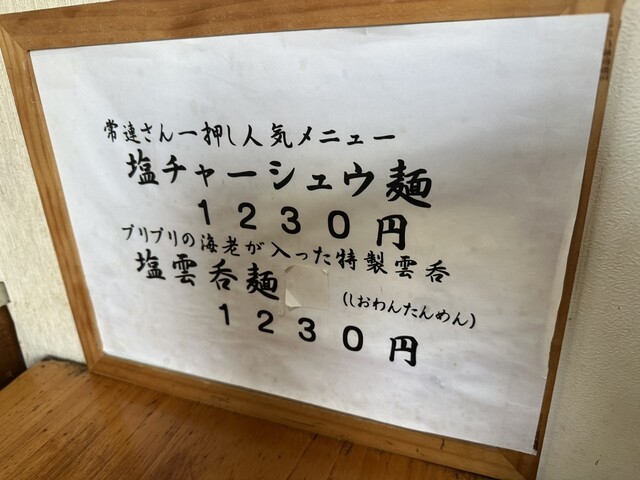 常連さん一押し人気メニュー
塩チャーシュウ麺
1230円
プリプリの海老が入った特製雲呑
塩雲呑麺
(しおわんたんめん)
1230円